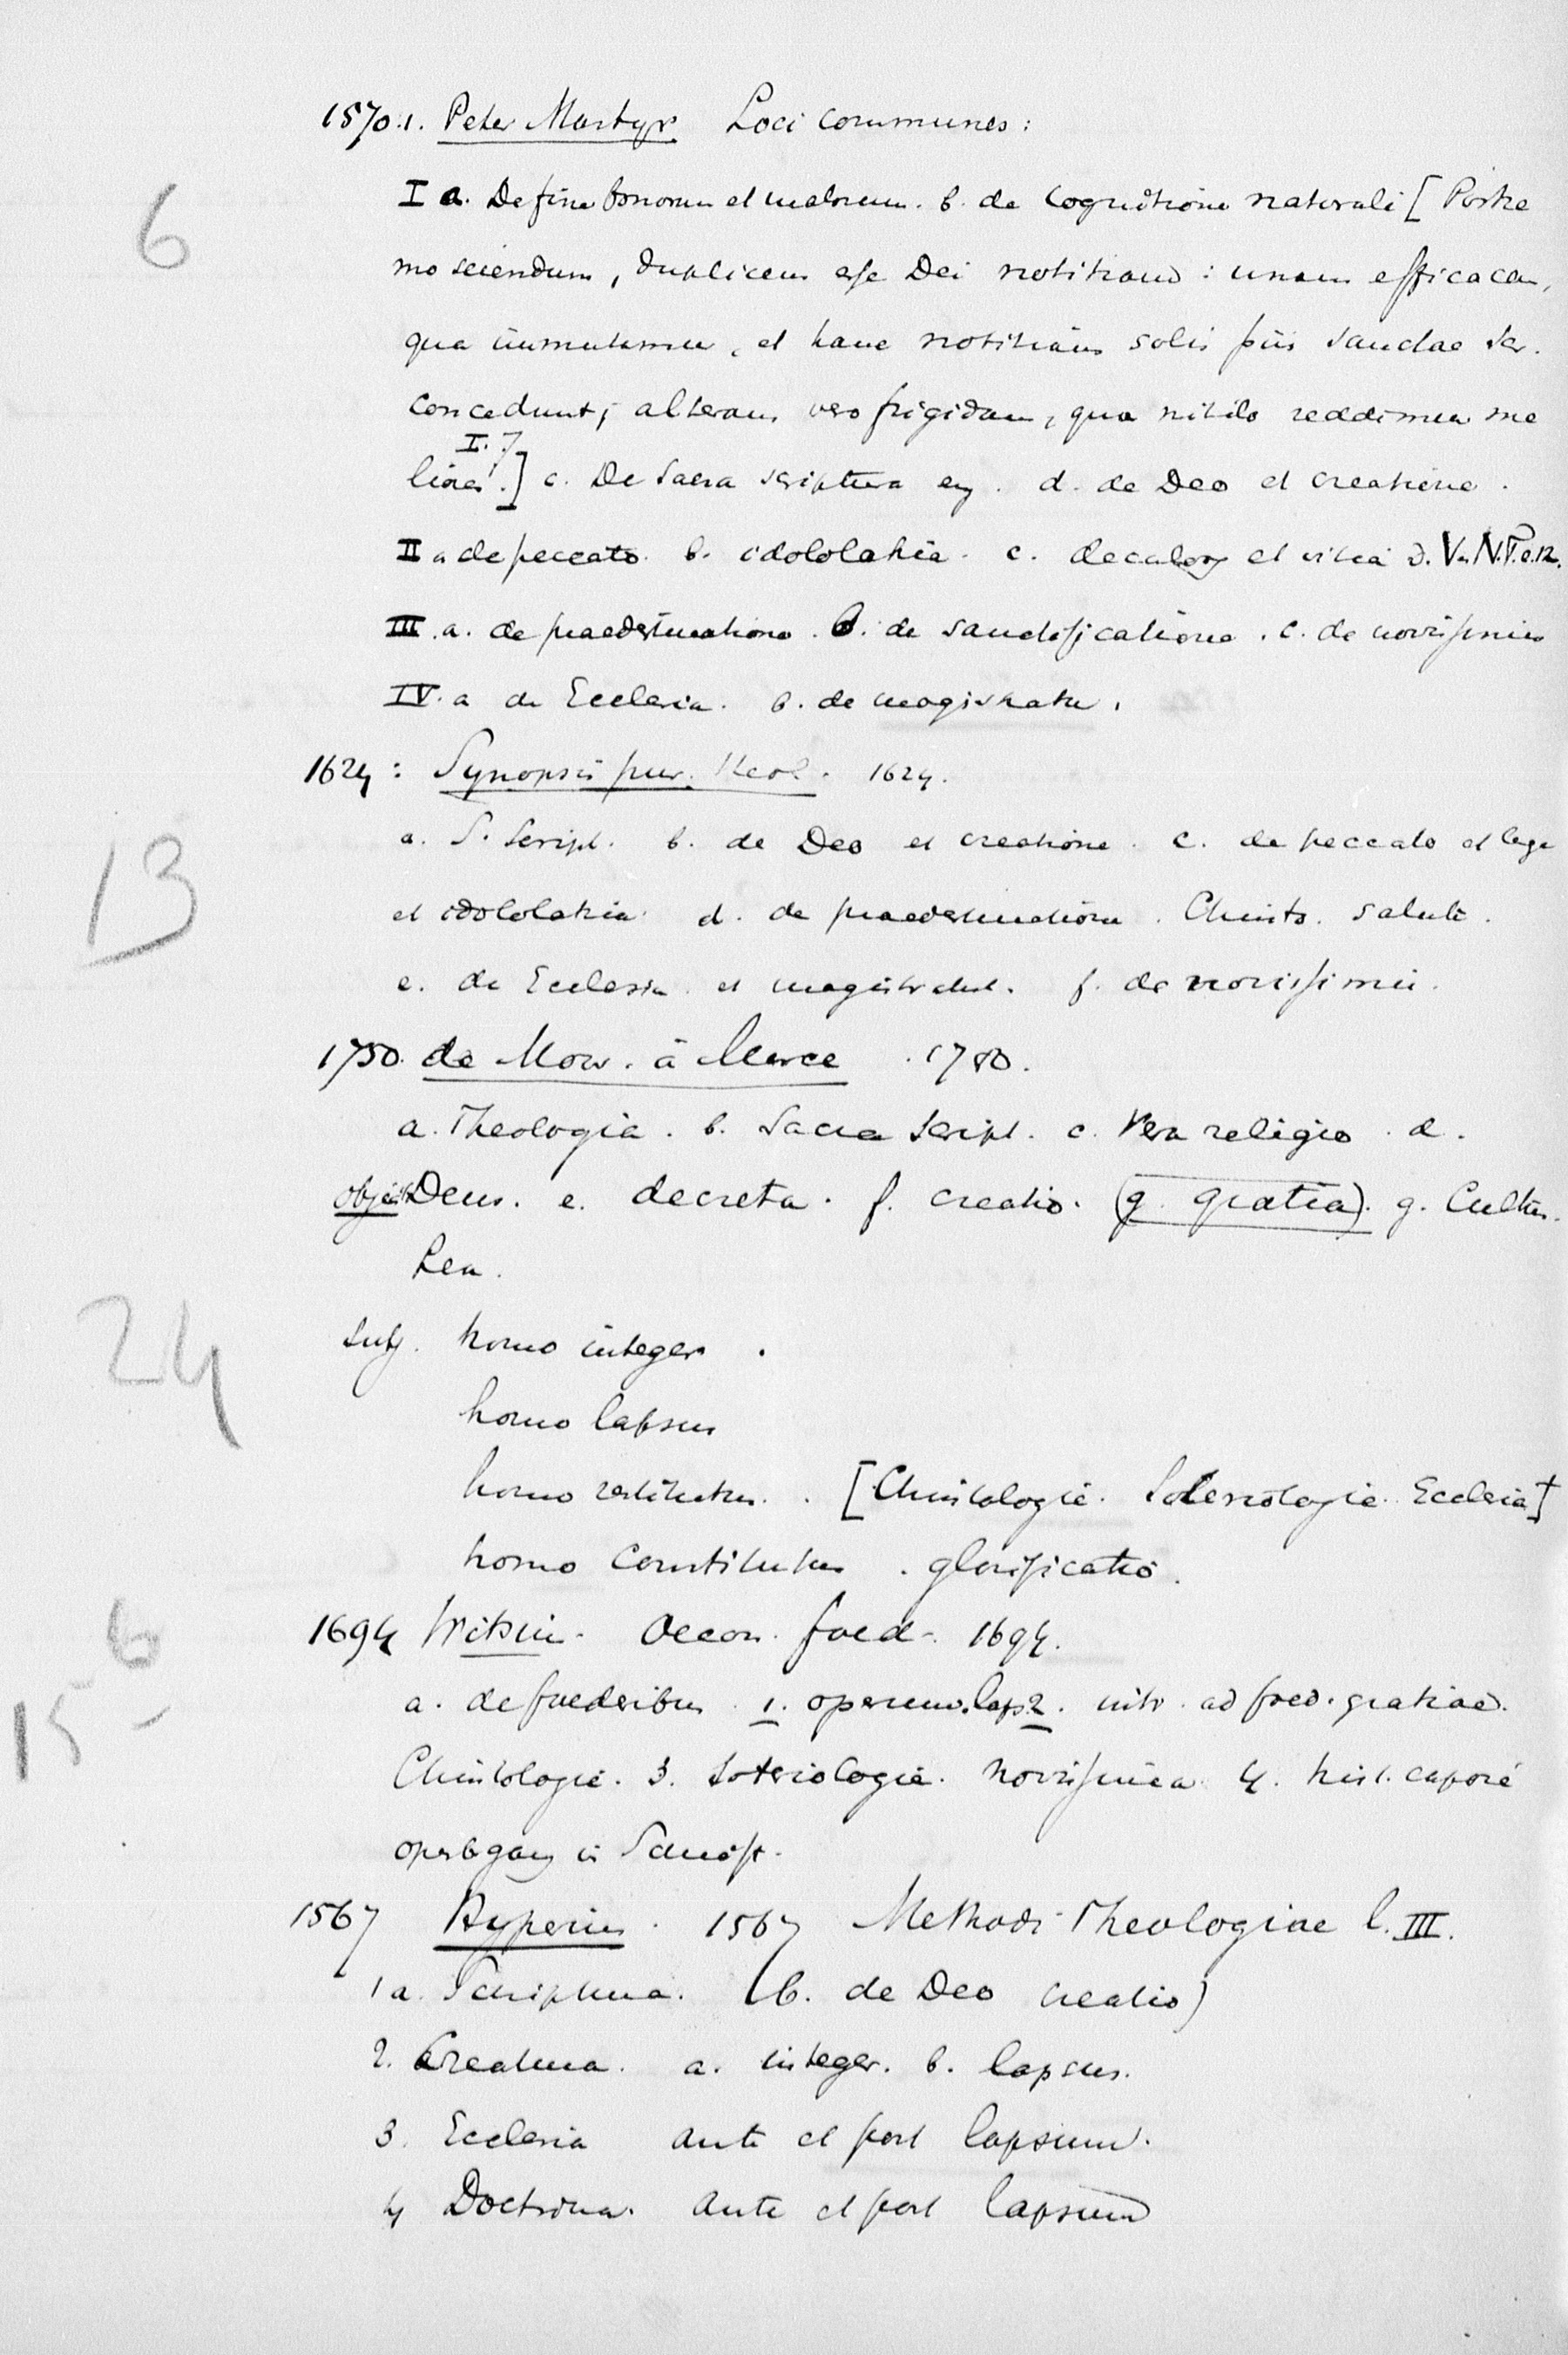 1570.1. Peter Martyr Loci communes:
6
I a. De fine bonorum et malorum. b. de cognitione naturali [Postre
mo sciendum, duplicem esse Dei notitiam: unam efficacem,
qua immutamur, et hanc notitiam solis piis sanctae scr.
concedunt; alteram vero frigidam, qua nihilo reddimur me
I. 7
liores.] c. De Sacra scriptura d. de Deo et creatione.
II a de peccato. b. idololatria. c. decalog et vitia d. V. N.T. e.
III. a. de praedestinatione. b. de sanctificatione. c. de novissimis
IV. a de Ecclesia. b. de magistratu.
1624: Synopsis pur. theol. 1624.
13
a. S. Script. b. de Deo et creatione. c. de peccato et lege
et idololatria. d. de praedestinatione. Christo. salute.
e. de Ecclesia et magistratu. f. de novissimis.
1780. de Moor. à Marck. 1780.
a. Theologia. b. Sacra Script. c. Vera religio. d.
object Deus. e. decreta. f. creatio. (g. gratia). g. Cultus.
Leer.
24
subj. homo integer.
homo lapsus
homo restitutus. [Christologie. Soteriologie. Ecclesia†]
homo constitutus. glorificatio.
6
1694 Witsius. Oecon. foed. 1694.
15 -
a. de foederibus 1. operum. laps. 2. intr. ad foed. gratiae.
Christologie. 3. Soteriologie. Novissimea. 4. hist.
in Schrift.
1567 Hyperius. 1567 Methodi Theologiae l. III.
1 a. Scriptura. (b. de Deo creatio)
2. Creatura. a. integer. b. lapsus.
3. Ecclesia ante et post lapsum.
4 Doctrina. ante et post lapsum